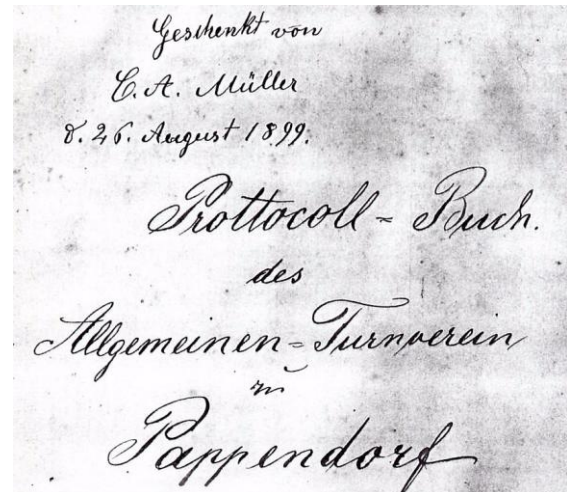 Geschenkt von
C. A. Müller
d. 26. August 1899.
Prottocoll = Buch.
des
Allgemeinen = Turnverein
zu
Pappendorf